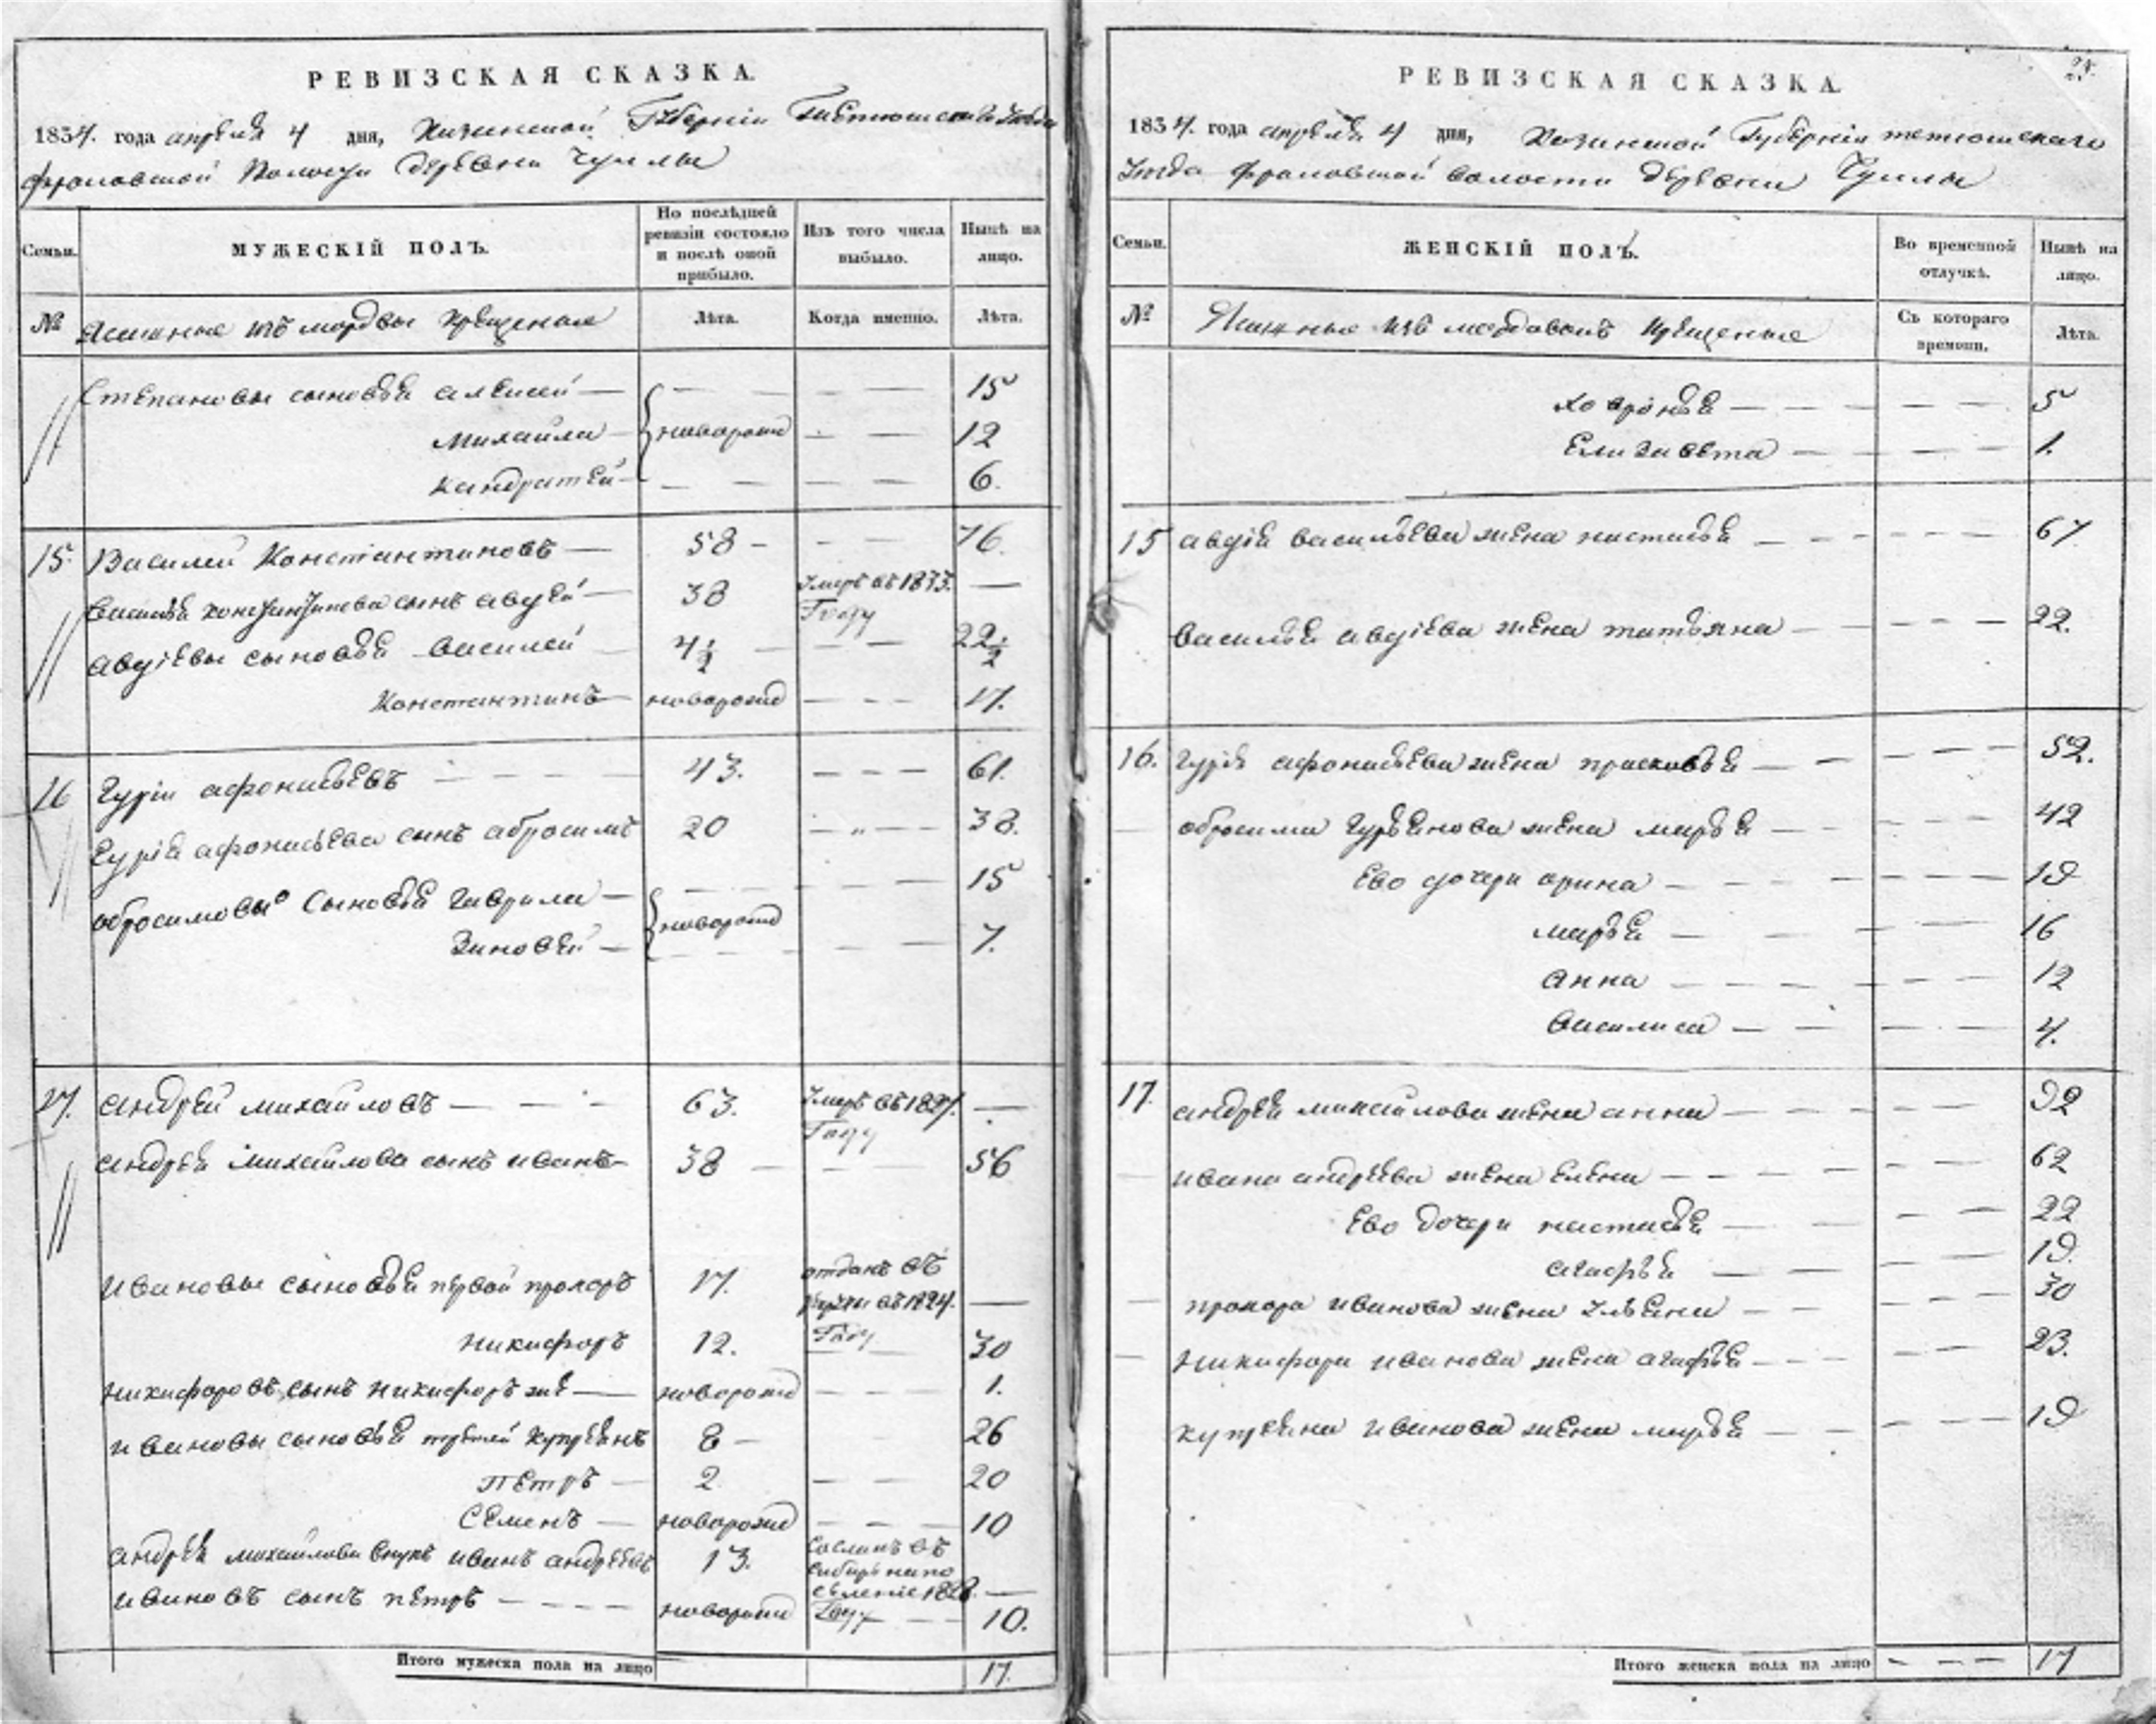 РЕВИЗСКАЯ СКАЗКА.
1834. года апреля 4 дня, Казанской Губернии Тетюшскаго Уезда
фроловской Волости деревни Чуплы
Семьи.
МУЖЕСКІЙ ПОЛЪ.
По послѣдней ревизіи состояло и послѣ оной прибыло.
Изъ того числа выбыло.
Нынѣ на лицо.
№
Ясашные изъ мордвы крещеные
Лѣта.
Когда именно.
Лѣта.
Степановы сыновья алексей — — — 15
Михайла — новорожд — — 12
Кандратей — — — 6.
15. Василей Константиновъ — 58 — — — 76.
Василья Константинова сынъ авдей — 38 Умеръ въ 1833. Году —
авдѣевы сыновья Василей 4½ — — — 22½
Константинъ — новорожд — — — 17.
16 Гурiй афонасьевъ — — — 43. — — — 61.
Гурiя афонасьева сынъ абросимъ 20 — — — 38.
обросимовы сыновья Гаврила — — — 15
Зиновей — новорожд — — 7.
17. андрей михайловъ — — — 63. Умеръ въ 1827. Году —
андрея михайлова сынъ иванъ — 38 — — 56
ивановы сыновья первой прохоръ 17. отданъ въ рекруты въ 1824. Году —
никифоръ 12. — 30
никифоровъ сынъ никифоръ же — новорожд — — 1.
ивановы сыновья третей купреянъ 8 — — 26
Петръ — 2 — — 20
Семенъ — новорожд — — — 10
андрея михайлова внукъ иванъ андреевъ 13. Сосланъ въ сибирь на поселенiе 1828. Году —
ивановъ сынъ петръ — — — — новорожд — — 10.
Итого мужеска пола на лицо 17.
РЕВИЗСКАЯ СКАЗКА.
1834. года апреля 4 дня, Казанской Губерніи тетюшскаго
Уезда фроловской волости деревни Чуплы
Семьи.
ЖЕНСКІЙ ПОЛЪ.
Во временной отлучкѣ.
Нынѣ на лицо.
№
Ясашные изъ мордовокъ крещеные
Съ котораго времени.
Лѣта.
Ховронья — — — — 5
Елизавета — — — — 1.
15 авдѣя васильева жена настасья — — — — 67
Василья авдѣева жена татьяна — — — — 22.
16. Гурiя афонасьева жена прасковья — — — — 52.
обросима Гурьянова жена марья — — — — 42
Ево дочери орина — — — — 19
марья — — — — 16
анна — — — — 12
василиса — — — — 4.
17. андрея михайлова жена анна — — — — 92
ивана андреева жена елена — — — — 62
Ево дочери настасья — — — 22
агафья — — — 19.
прохора иванова жена Ульяна — — — 30
Никифора иванова жена агафья — — — 23.
купреяна иванова жена марья — — — 19
Итого женска пола на лицо — — — 17